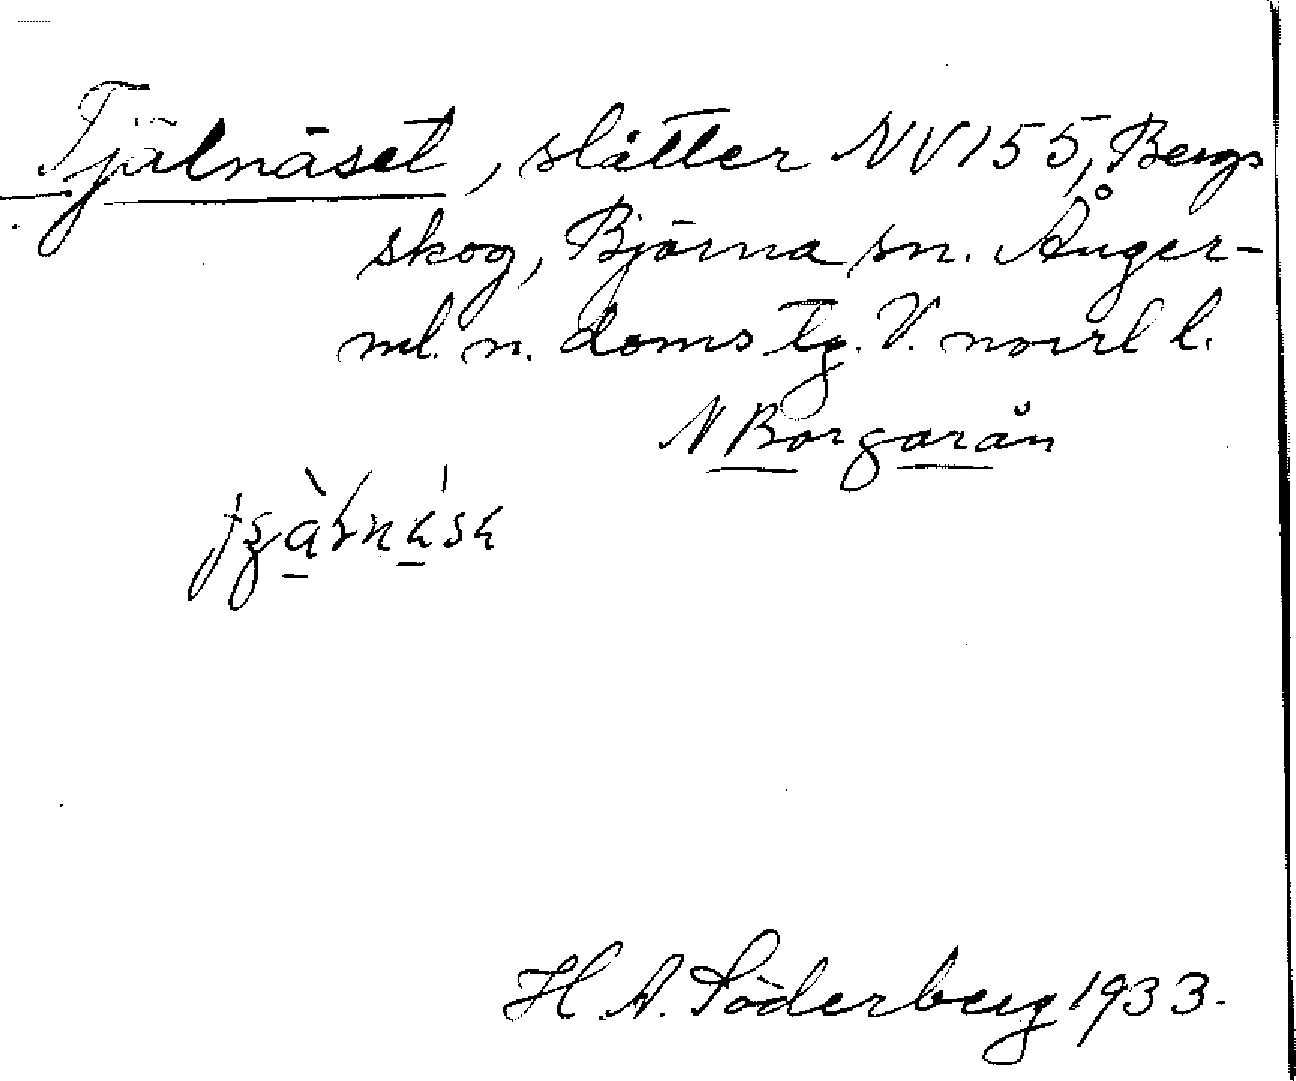 Tjälnäset, slåtter NV 155, Bergs
skog, Björna sn. Ånger-
ml. n. doms tg. V. norrl l.
N Borgarån
H. A. Söderberg 1933.